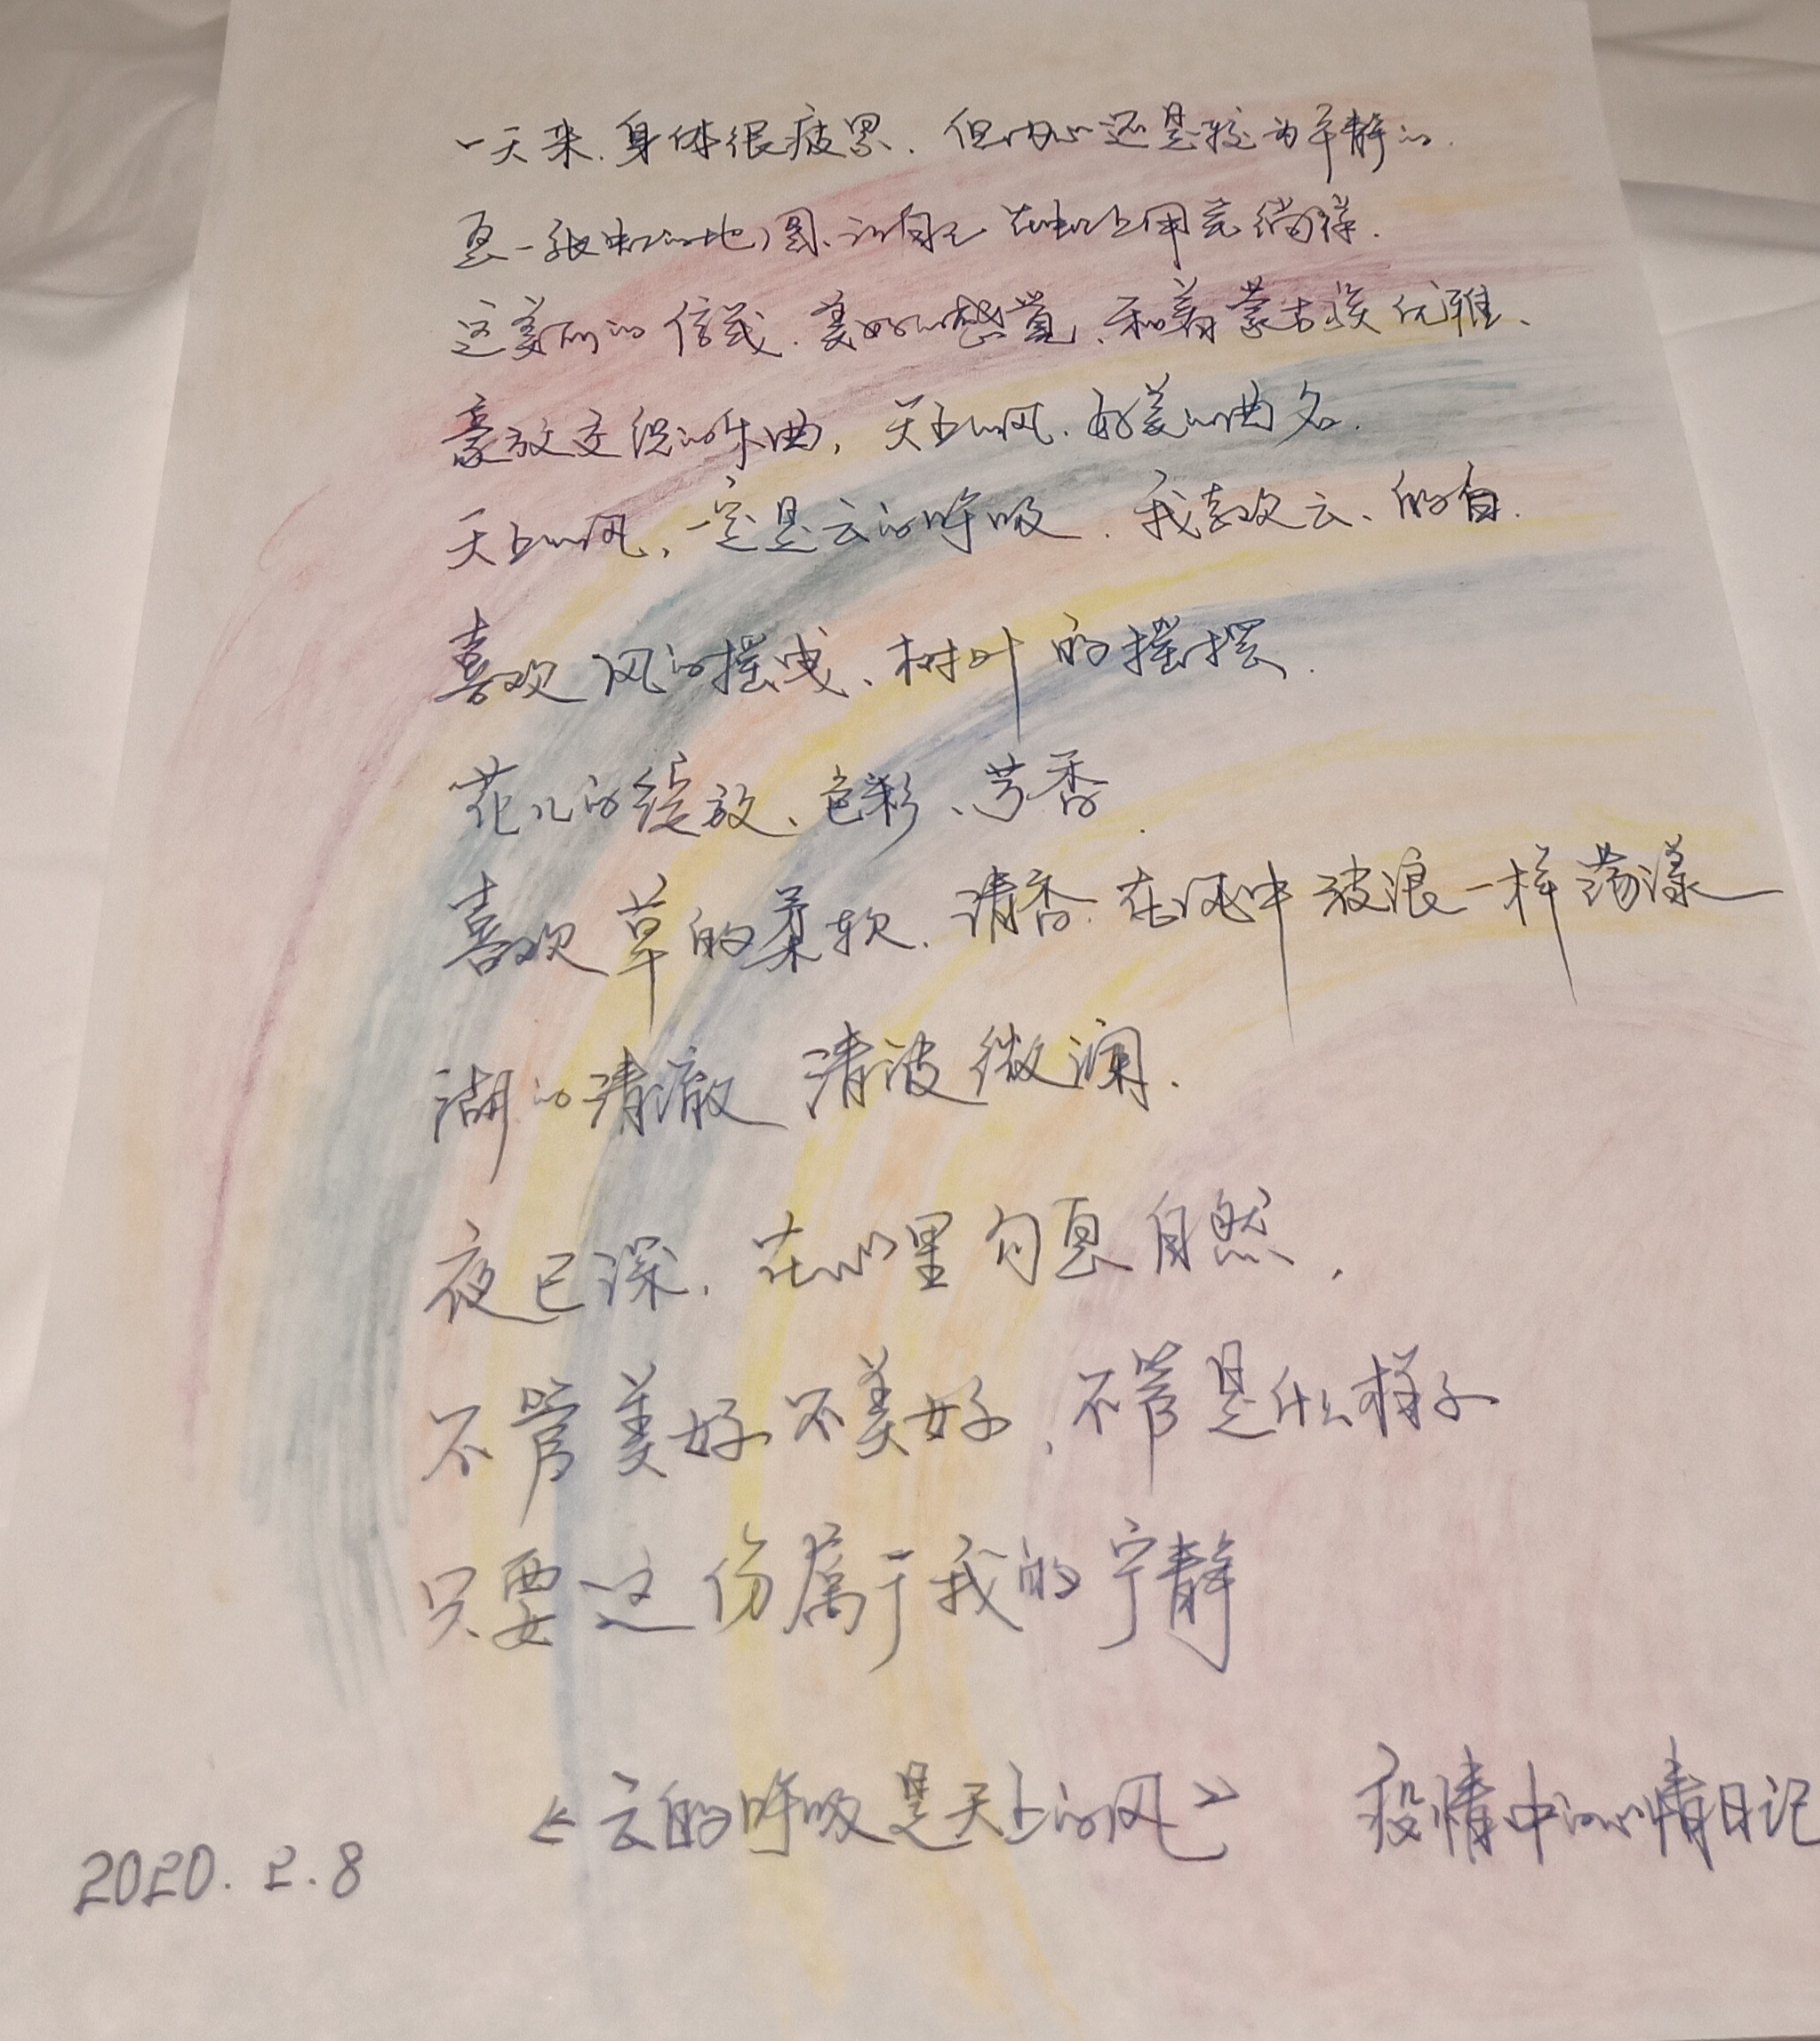 一天来.身体很疲累.但内心还是较为平静的.
画一张虹的地图、让自己在虹上徜徉.
这美丽的信笺.美好的感觉、和着蒙古族优雅、
豪放交织的乐曲,天上的风.好美的曲名.
天上的风,一定是云的呼吸.我喜欢云、的白.
喜欢风的摇曳、树叶的摇摆.
花儿的绽放、色彩、芳香.
喜欢草的柔软.清香.在风中波浪一样荡漾
湖的清澈 清波微澜.
夜已深.在心里勾画自然,
不管美好不美好,不管是什么样子
只要这份属于我的宁静
《云的呼吸是天上的风》 疫情中的心情日记
2020.2.8